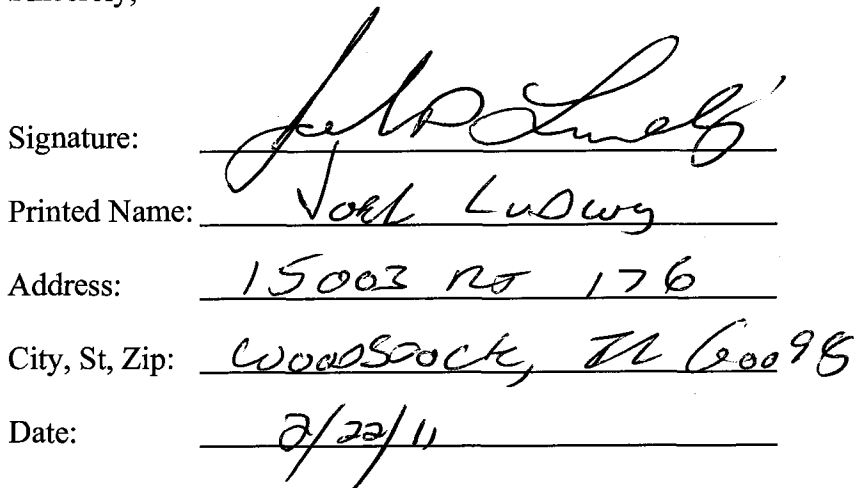 Sincerely,
Signature: Joel P Ludwig
Printed Name: Joel Ludwig
Address: 15003 RT 176
City, St, Zip: Woodstock, IL 60098
Date: 2/22/11